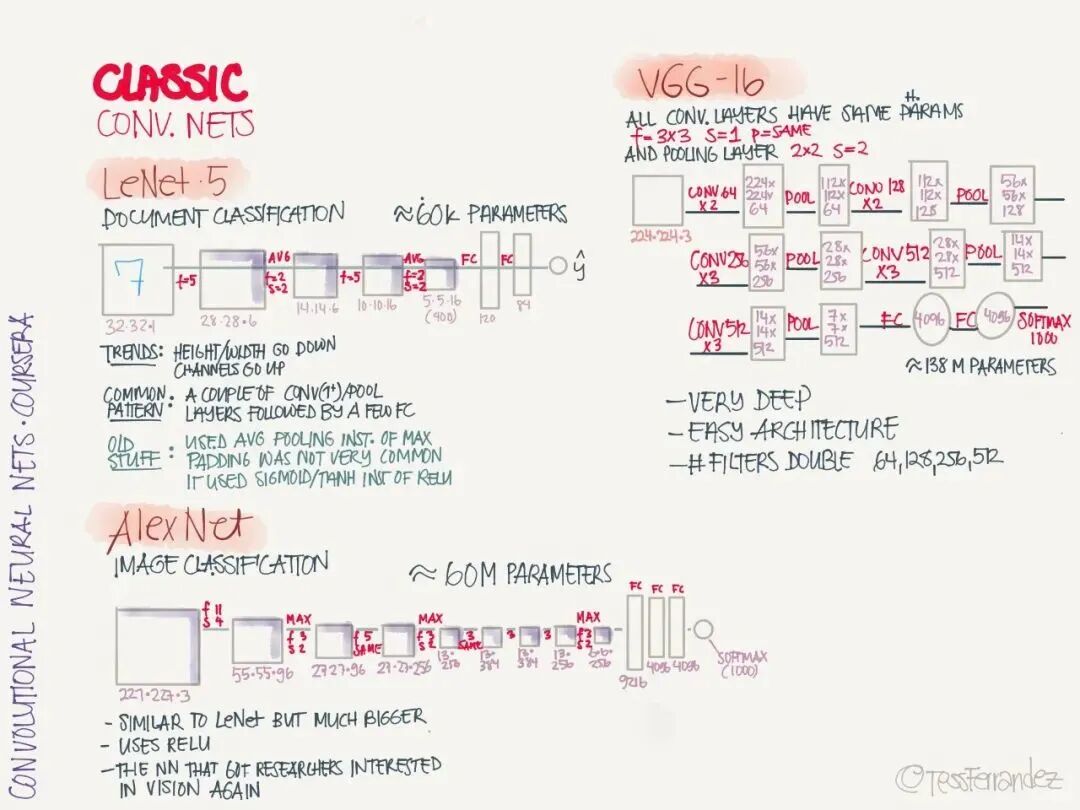 CLASSIC
CONV. NETS
LeNet-5
DOCUMENT CLASSIFICATION ≈60K PARAMETERS
7
f=5
AVG
f=2
S=2
f=5
AVG
f=2
S=2
FC
FC
ŷ
32·32·1
28·28·6
14·14·6
10·10·16
5·5·16
(400)
120
84
TRENDS: HEIGHT/WIDTH GO DOWN
CHANNELS GO UP
COMMON PATTERN: A COUPLE OF CONV(1+)/POOL
LAYERS FOLLOWED BY A FEW FC
OLD STUFF: USED AVG POOLING INST. OF MAX
PADDING WAS NOT VERY COMMON
IT USED SIGMOID/TANH INST OF RELU
AlexNet
IMAGE CLASSIFICATION ≈ 60M PARAMETERS
f 11
S 4
MAX
f 3
S 2
f 5
SAME
MAX
f 3
S 2
3
SAME
3
3
MAX
f 3
S 2
FC
FC
FC
227·227·3
55·55·96
27·27·96
27·27·256
13·
256
13·
384
13·
384
13·
256
6·6·
256
9216
4096
4096
SOFTMAX
(1000)
- SIMILAR TO LeNet BUT MUCH BIGGER
- USES RELU
- THE NN THAT GOT RESEARCHERS INTERESTED
IN VISION AGAIN
VGG-16
H.
ALL CONV. LAYERS HAVE SAME PARAMS
f= 3×3 S=1 P=SAME
AND POOLING LAYER 2×2 S=2
224·224·3
CONV 64
X2
224×
224×
64
POOL
112×
112×
64
CONV 128
X2
112×
112×
128
POOL
56×
56×
128
CONV 256
X3
56×
56×
256
POOL
28×
28×
256
CONV 512
X3
28×
28×
512
POOL
14×
14×
512
CONV 512
X3
14×
14×
512
POOL
7×
7×
512
FC
4096
FC
4096
SOFTMAX
1000
≈138 M PARAMETERS
- VERY DEEP
- EASY ARCHITECTURE
- # FILTERS DOUBLE 64,128,256,512
CONVOLUTIONAL NEURAL NETS · COURSERA
©TessFerrandez